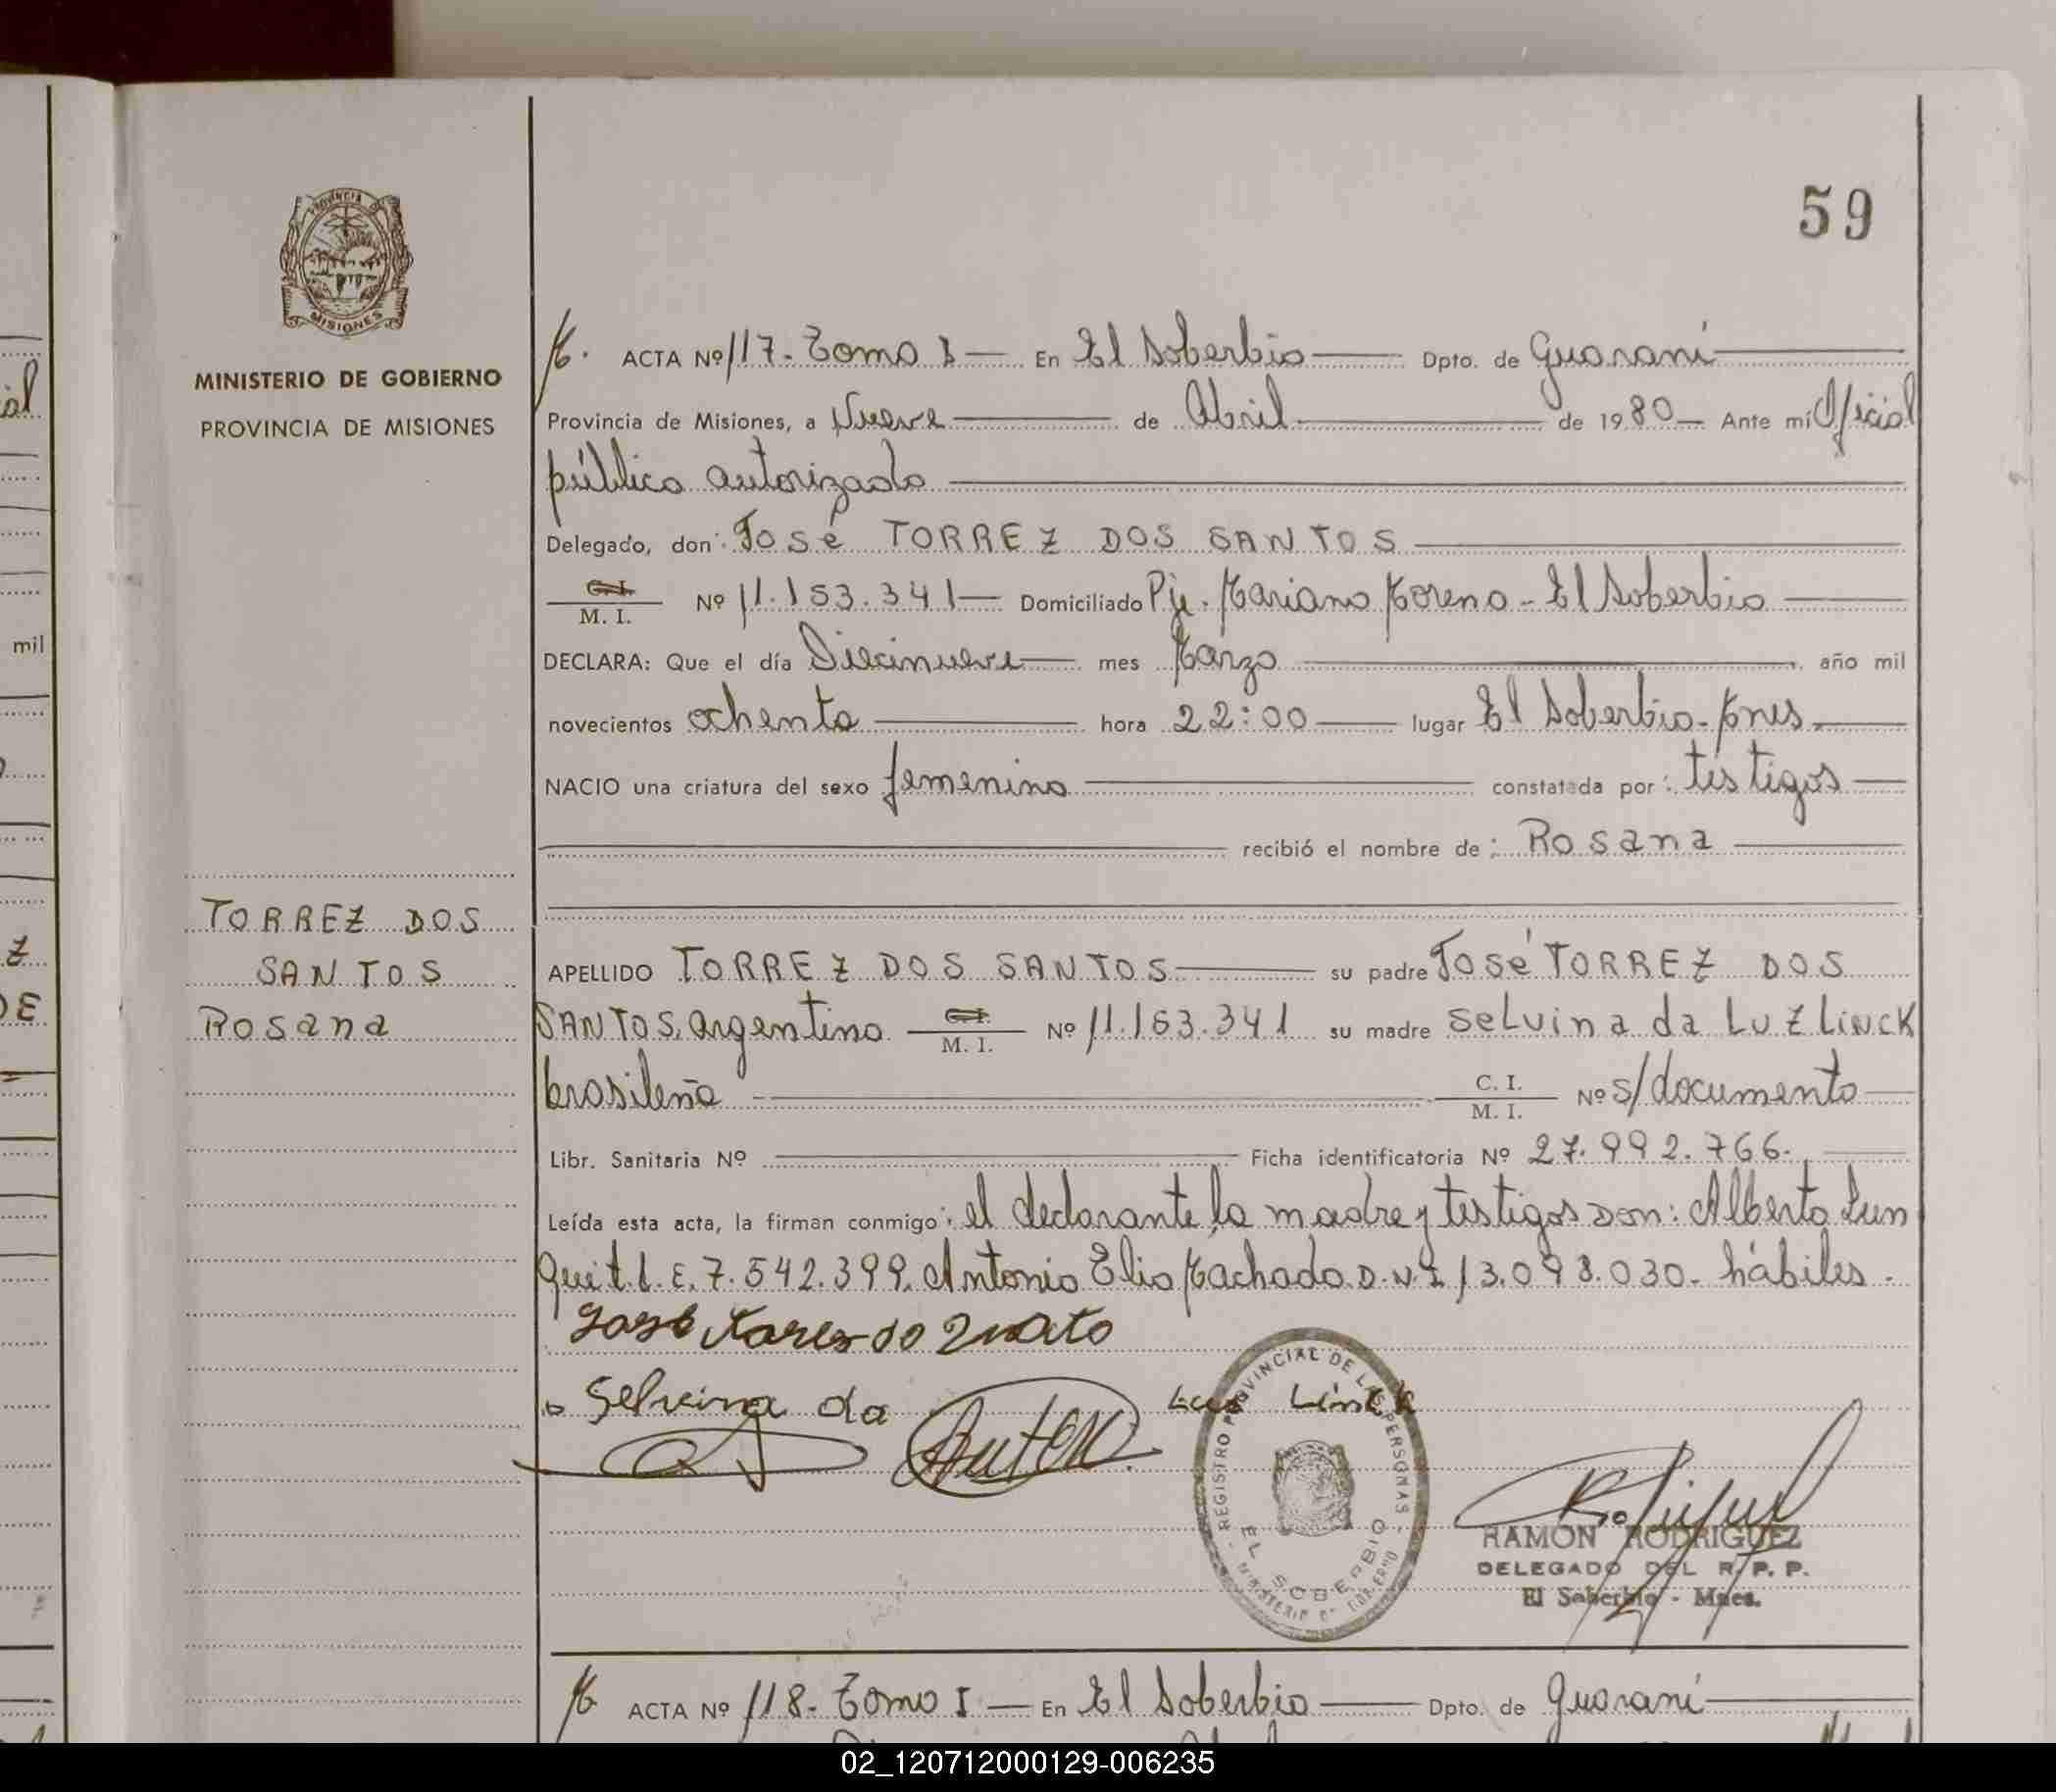 59
PROVINCIA
MISIONES
MINISTERIO DE GOBIERNO
PROVINCIA DE MISIONES
TORREZ DOS
SANTOS
Rosana
ACTA Nº 117- Tomo I — En El Soberbio — Dpto. de Guaraní
Provincia de Misiones, a Nueve — de Abril — de 1980 — Ante mí Oficial
público autorizado
Delegado, don: José TORREZ DOS SANTOS
C. I. M. I. Nº 11.153.341 — Domiciliado Pje. Mariano Moreno - El Soberbio
DECLARA: Que el día Diecinueve — mes Marzo — año mil
novecientos ochenta — hora 22:00 — lugar El Soberbio - Mnes.
NACIO una criatura del sexo femenino — constatada por: testigos
recibió el nombre de: Rosana
APELLIDO TORREZ DOS SANTOS — su padre José TORREZ DOS
SANTOS, argentino C. I. M. I. Nº 11.163.341 su madre Selvina da LUZ LINCK
brasileña — C. I. M. I. Nº s/documento
Libr. Sanitaria Nº — Ficha identificatoria Nº 27.992.766.
Leída esta acta, la firman conmigo: el declarante, la madre y testigos Don: Alberto Lun
quit L.E. 7.542.399, Antonio Elio Machado D.N.I 13.093.030- hábiles.
Selvina da Luz Linck
REGISTRO PROVINCIAL DE LAS PERSONAS
EL SOBERBIO
MINISTERIO DE GOBIERNO
RAMON RODRIGUEZ
DELEGADO DEL R. P. P.
El Soberbio - Mnes.
ACTA Nº 118- Tomo I — En El Soberbio — Dpto. de Guaraní
mil
02_120712000129-006235